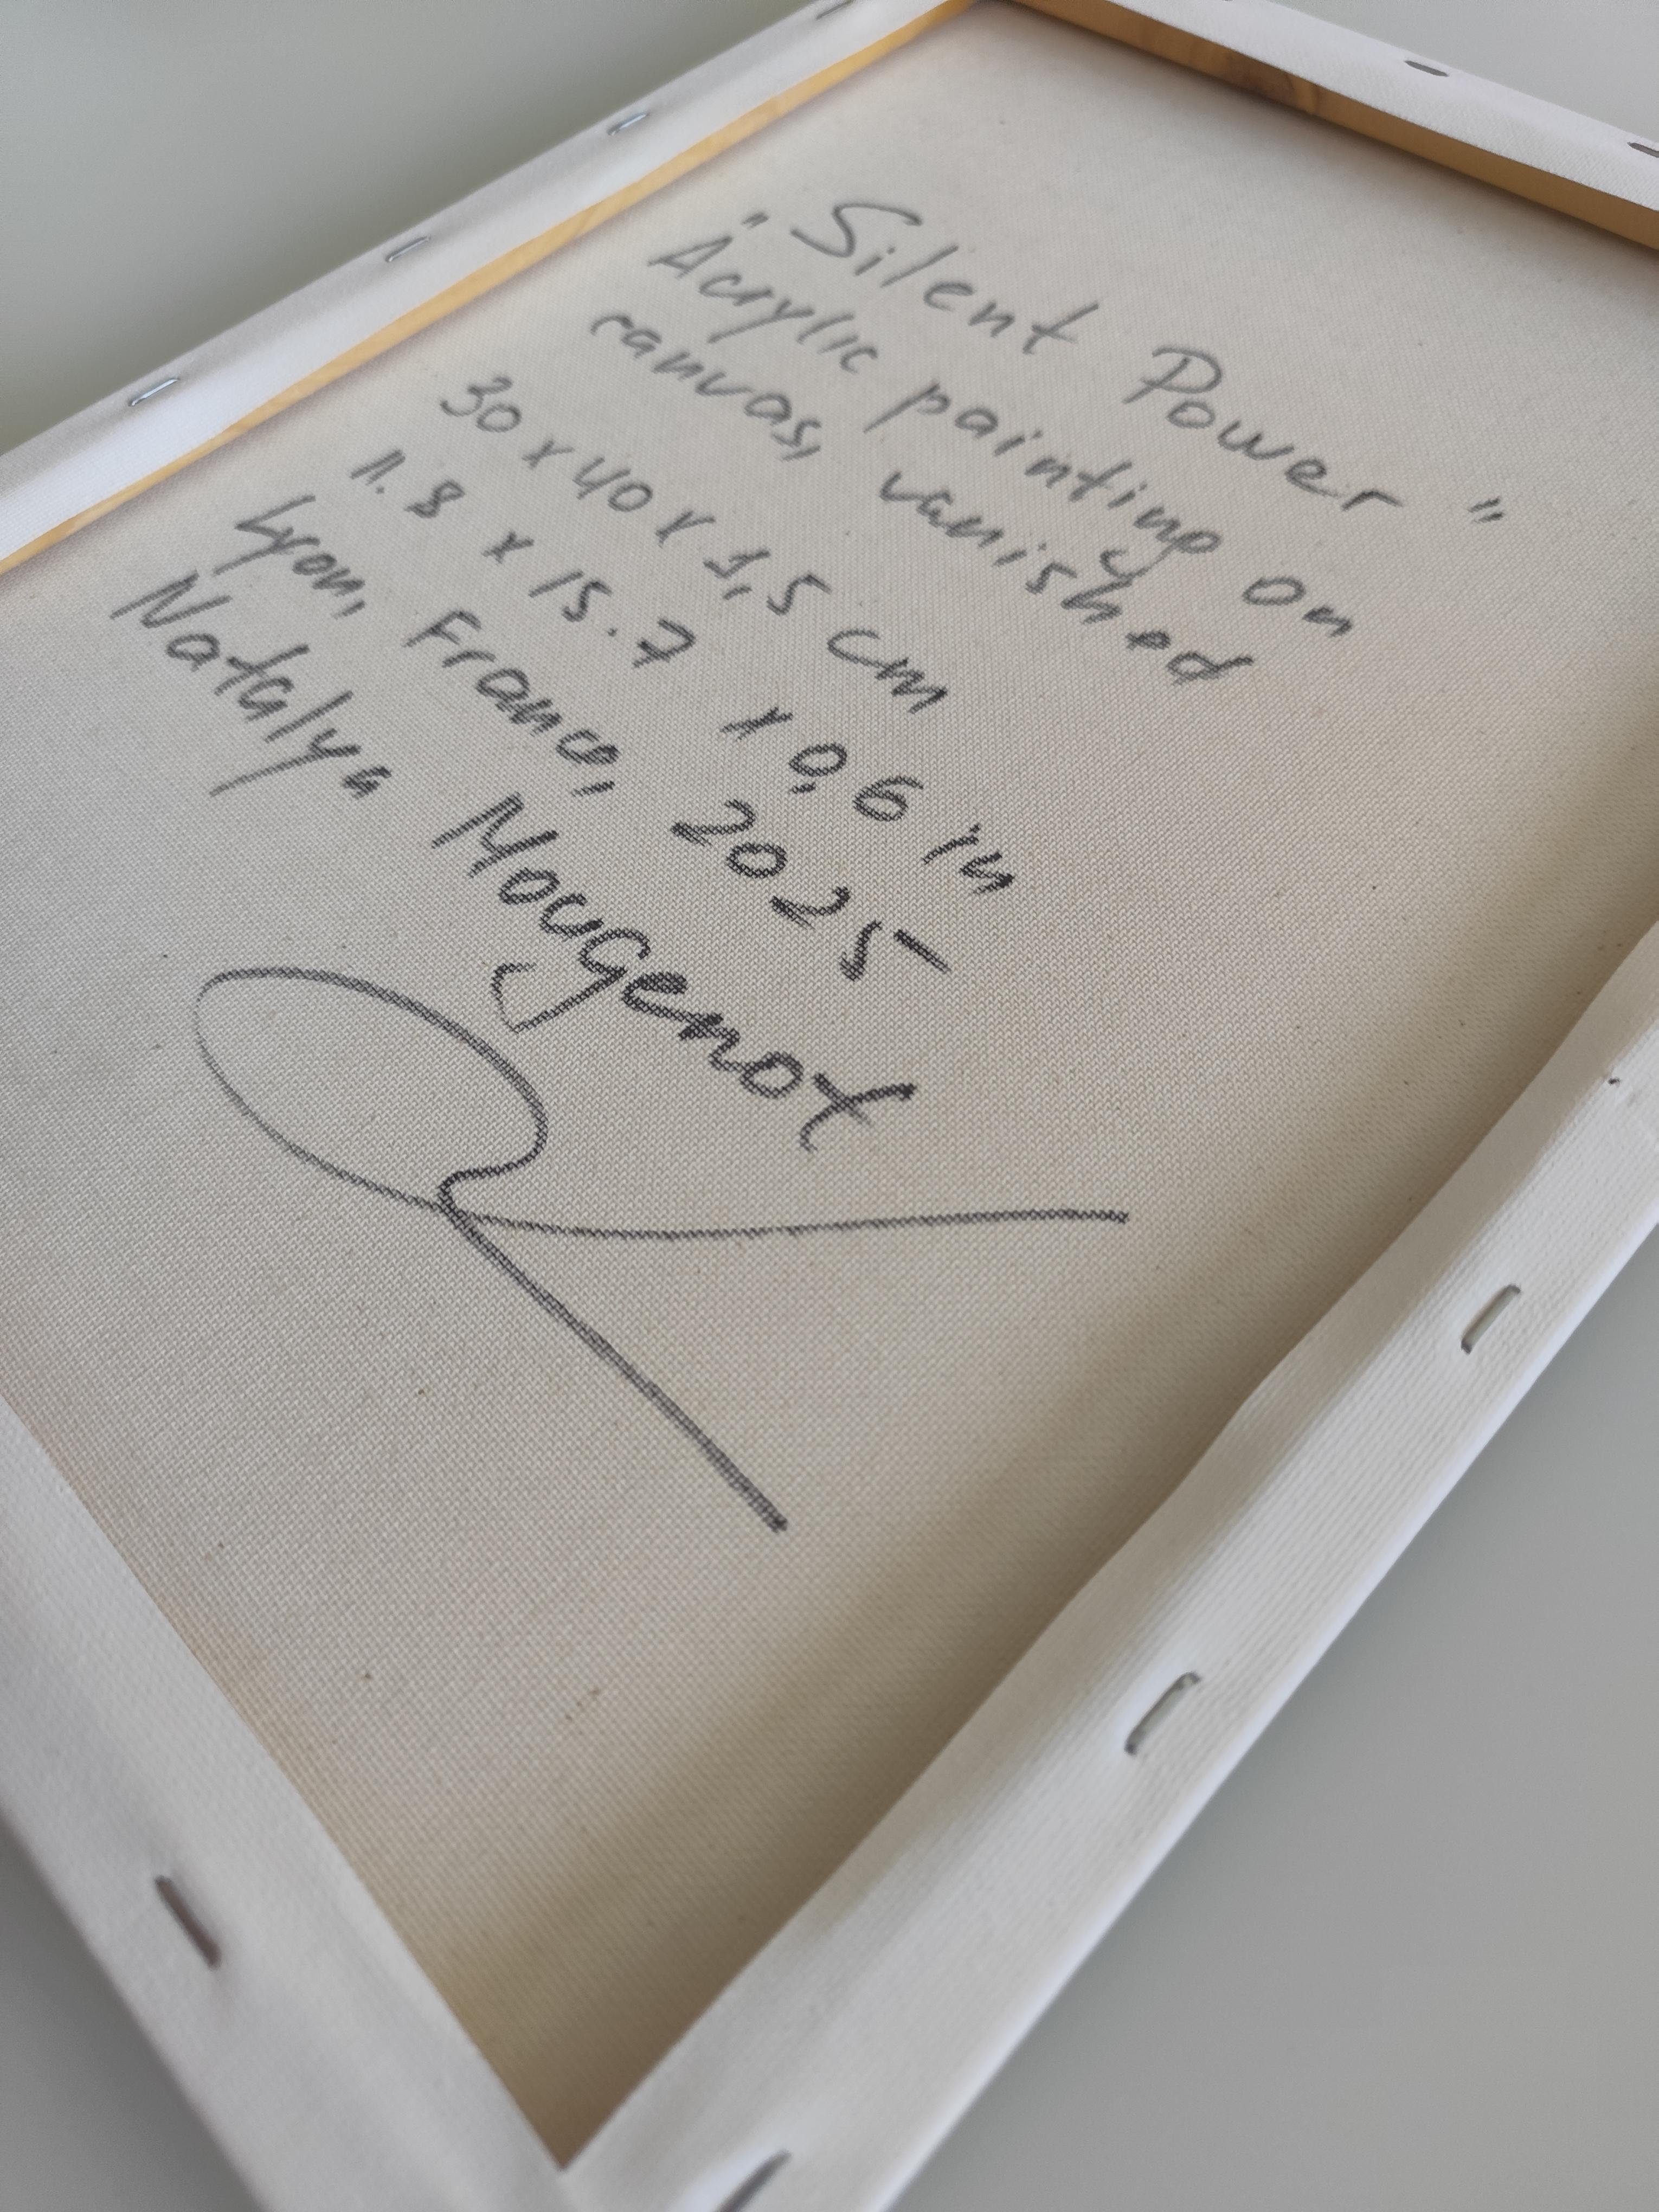 "Silent Power"
Acrylic painting on
canvas, vanished
30 x 40 x 1,5 cm
11.8 x 15.7 x 0,6 in
Lyon, France, 2025
Natalya Mougenot